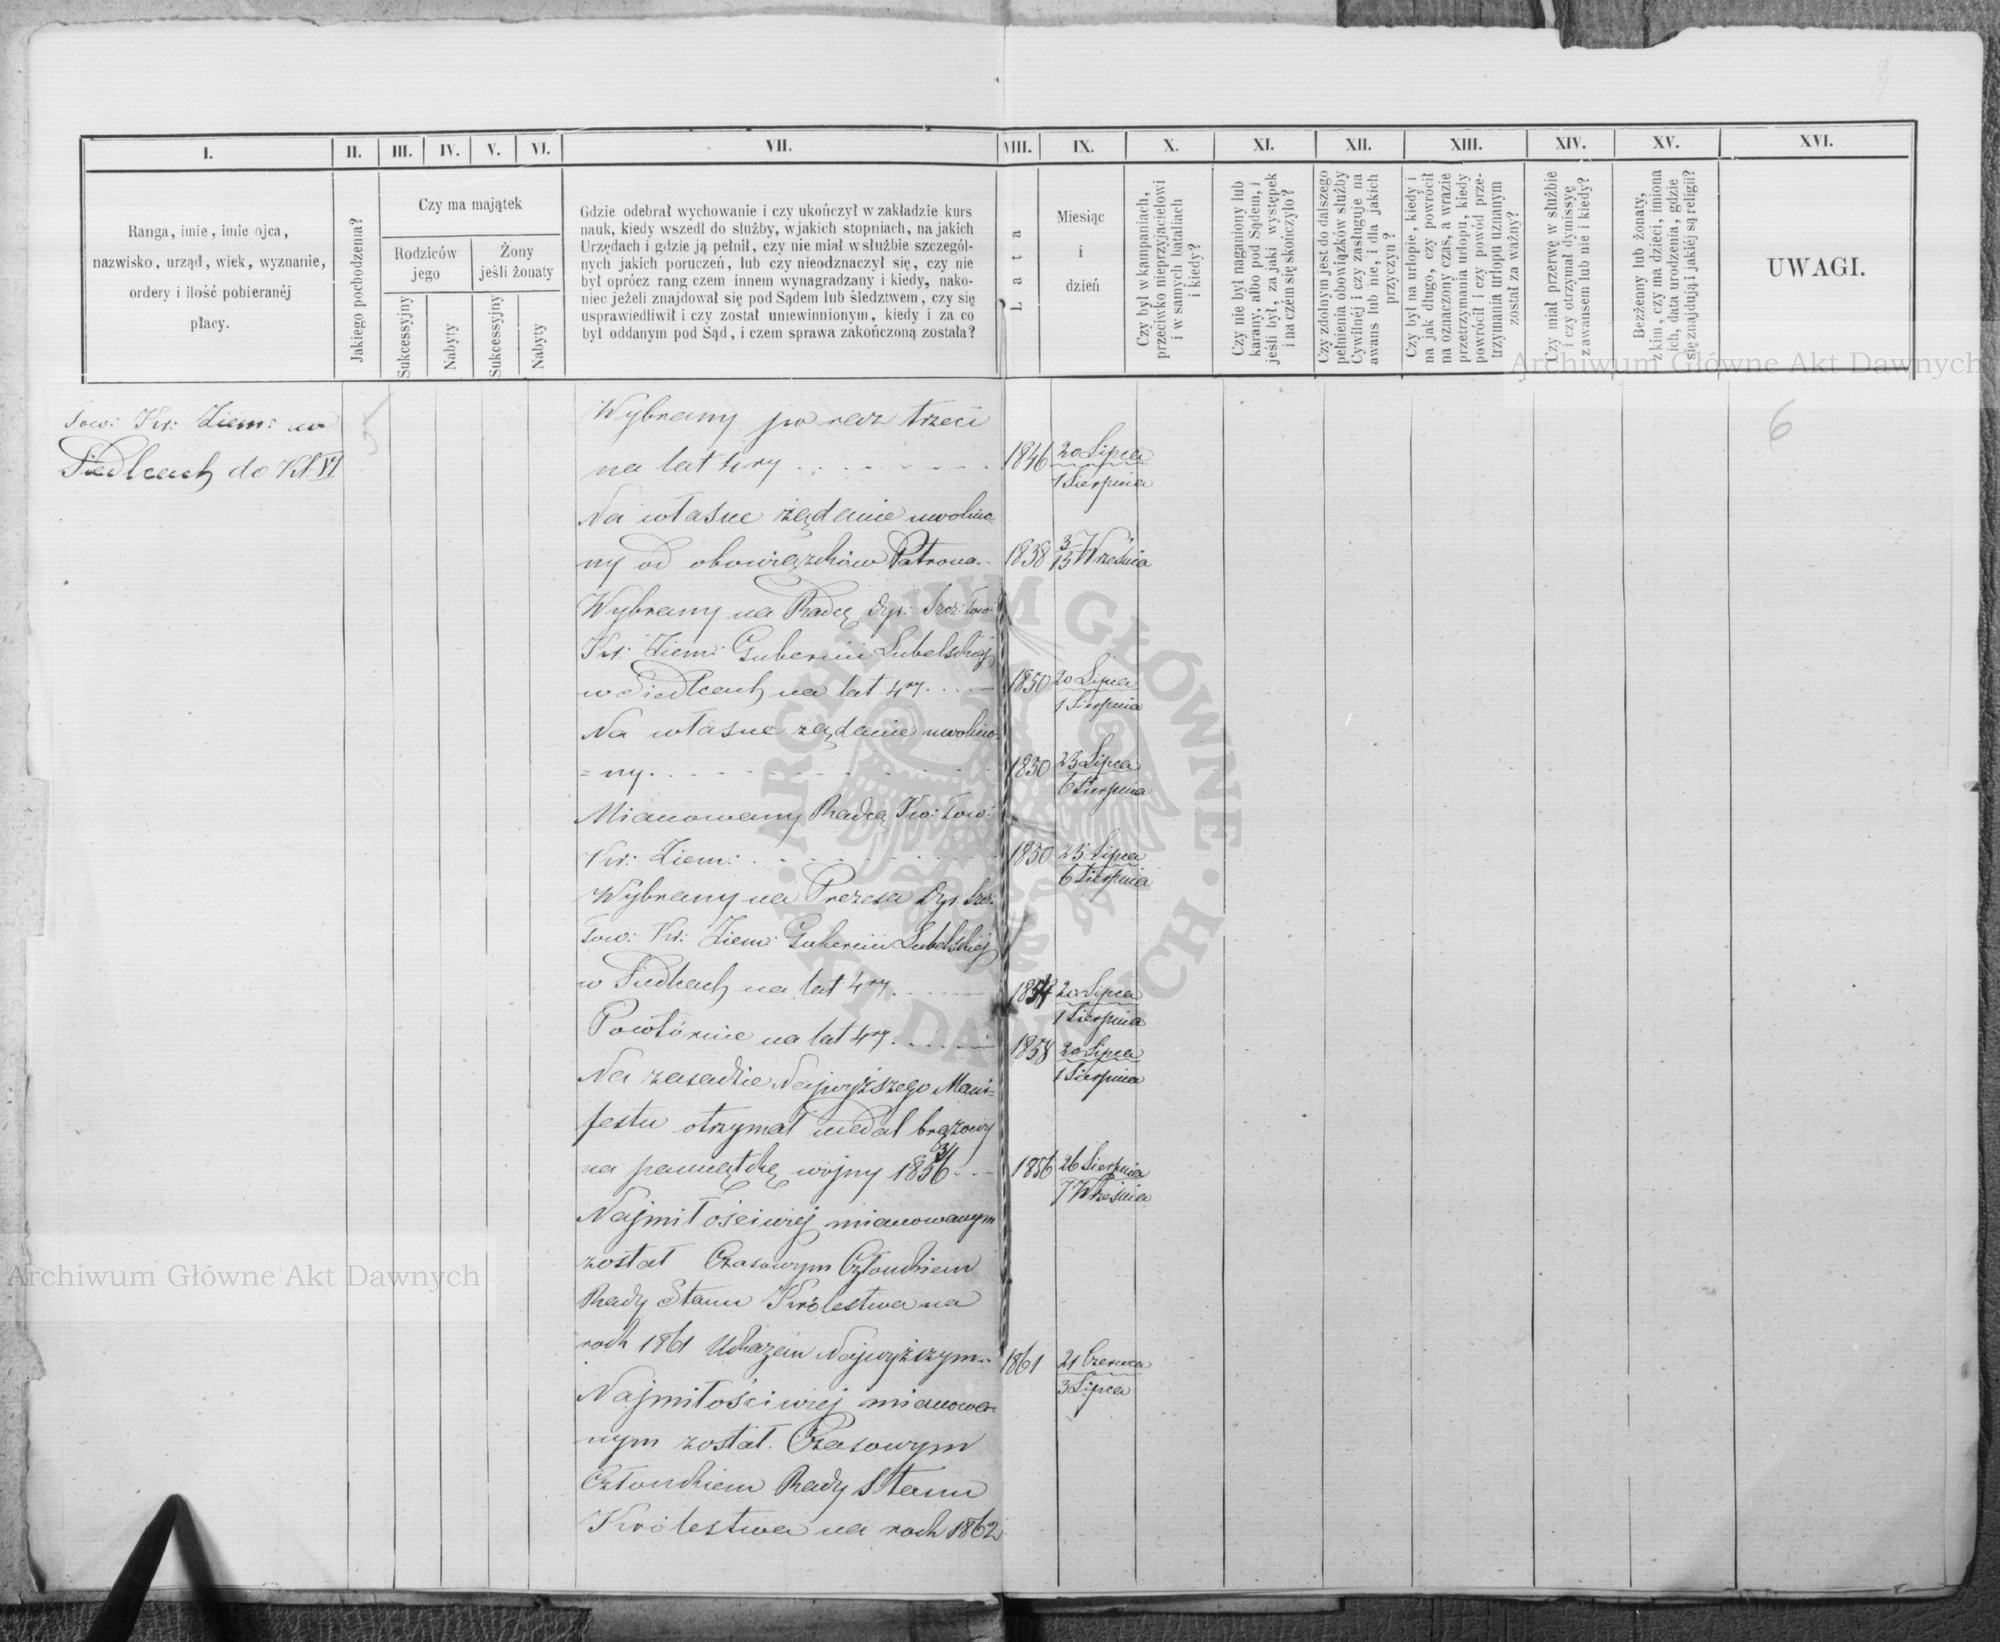 I.
II.
III.
IV.
V.
VI.
VII.
VIII.
IX.
X.
XI.
XII.
XIII.
XIV.
XV.
XVI.
Ranga, imie, imie ojca,
nazwisko, urząd, wiek, wyznanie,
ordery i ilość pobieranéj
płacy.
Jakiego pochodzenia?
Czy ma majątek
Rodziców
jego
Żony
jeśli żonaty
Sukcessyjny
Nabyty
Sukcessyjny
Nabyty
Gdzie odebrał wychowanie i czy ukończył w zakładzie kurs
nauk, kiedy wszedł do służby, w jakich stopniach, na jakich
Urzędach i gdzie ją pełnił, czy nie miał w służbie szczegól-
nych jakich poruczeń, lub czy nieodznaczył się, czy nie
był oprócz rang czem innem wynagradzany i kiedy, nako-
niec jeżeli znajdował się pod Sądem lub śledztwem, czy się
usprawiedliwił i czy został uniewinnionym, kiedy i za co
był oddanym pod Sąd, i czem sprawa zakończoną została?
Lata
Miesiąc
i
dzień
Czy był w kampaniach,
przeciwko nieprzyjacielowi
i w samych bataliach
i kiedy?
Czy nie był naganiony lub
karany, albo pod Sądem, i
jeśli był, za jaki występek
i na czém się skończyło?
Czy zdolnym jest do dalszego
pełnienia obowiązków służby
Cywilnéj i czy zasługuje na
awans lub nie, i dla jakich
przyczyn?
Czy był na urlopie, kiedy i
na jak długo, czy powrócił
na oznaczony czas, a w razie
przetrzymania urlopu, kiedy
powrócił i czy powód prze-
trzymania urlopu uznanym
został za ważny?
Czy miał przerwę w służbie
i czy otrzymał dymissyę
z awansem lub nie i kiedy?
Bezżenny lub żonaty,
z kim, czy ma dzieci, imiona
ich, data urodzenia, gdzie
się znajdują i jakiéj są religii?
UWAGI.
Archiwum Główne Akt Dawnych
Tow: Kr: Ziem: w
Siedlcach do Kl. VI
5
6
Wybrany po raz trzeci
na lat 4ry 1846 20 Lipca
1 Sierpnia
Na własne żądanie uwolnio-
ny od obowiązków Patrona 1838 3/15 Września
Wybrany na Radcę Dyr: Szcz: Tow:
Kr: Ziem: Gubernii Lubelskiéj
w Siedlcach na lat 4ry 1850 20 Lipca
1 Sierpnia
Na własne żądanie uwolnio-
=ny 1850 25 Lipca
6 Sierpnia
Mianowany Radcą Tow:
Kr: Ziem: 1850 25 Lipca
6 Sierpnia
Wybrany na Prezesa Dyr: Szcz:
Tow: Kr: Ziem: Gubernii Lubelskiéj
w Siedlcach na lat 4ry 1854 20 Lipca
1 Sierpnia
Powtórnie na lat 4ry 1858 20 Lipca
1 Sierpnia
Na zasadzie Najwyższego Mani-
festu otrzymał medal brązowy
na pamiątkę wojny 1856 1856 26 Sierpnia
7 Września
Najmiłościwiej mianowanym
został Czasowym Członkiem
Rady Stanu Królestwa na
rok 1861 Ukazem Najwyższym 1861 21 Czerwca
3 Lipca
Najmiłościwiej mianowa-
nym został Czasowym
Członkiem Rady Stanu
Królestwa na rok 1862
Archiwum Główne Akt Dawnych
ARCHIWUM GŁÓWNE
AKT DAWNYCH